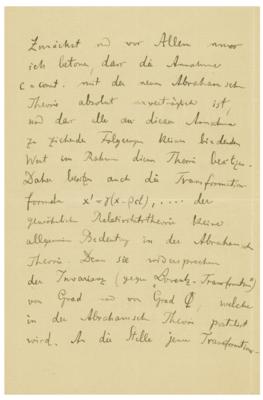 Zunächst und vor Allem muss
ich betonen, dass die Annahme
c = const. mit der neuen Abrahamschen
Theorie absolut unverträglich ist,
und dass alle aus dieser Annahme
zu ziehende Folgerungen keinen bindenden
Wert im Rahmen dieser Theorie besitzen.
Daher besitzen auch die Transformations-
formeln x' = γ(x - βct), .... der
gewöhnlichen Relativitätstheorie keine
allgemeine Bedeutung in der Abrahamsch
Theorie. Denn sie widersprechen
der Invarianz (gegen Lorentz-Transformation)
von Grad und von Grad Φ, welche
in der Abrahamsch Theorie postuliert
wird. An die Stelle jener Transformation-